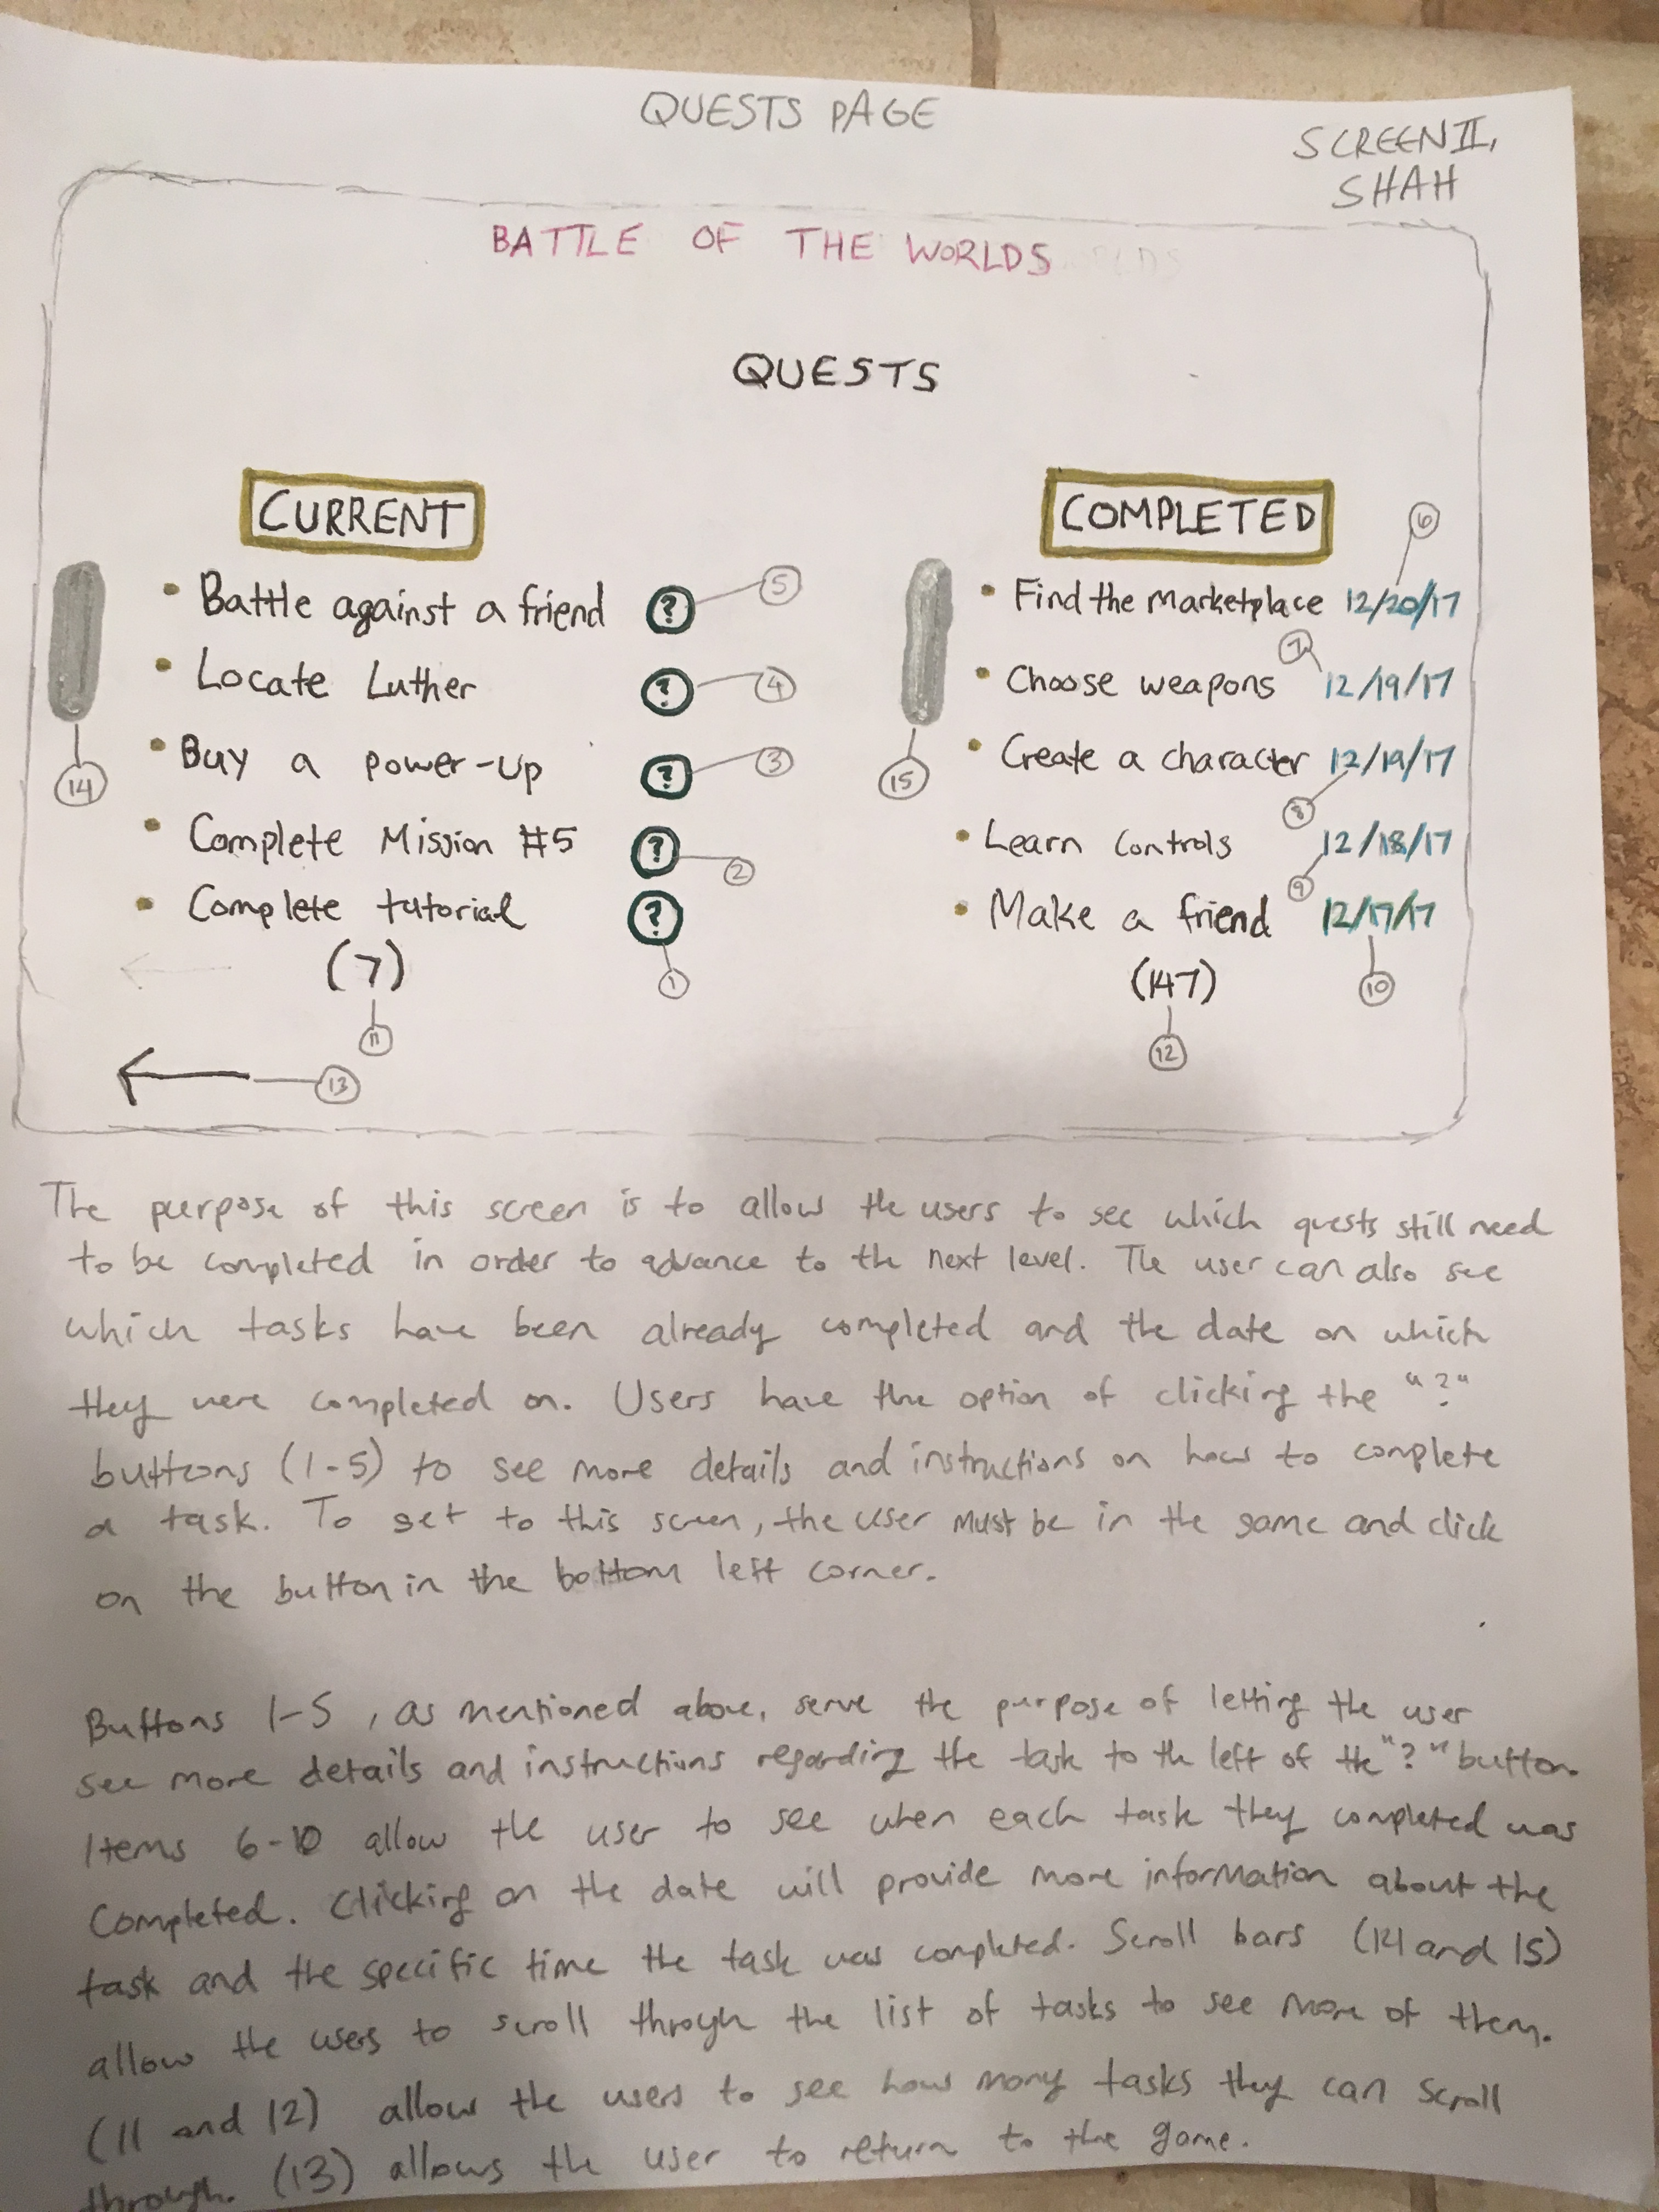 QUESTS PAGE
SCREEN II,
SHAH
BATTLE OF THE WORLDS
QUESTS
CURRENT
• Battle against a friend ? 5
• Locate Luther ? 4
• Buy a power-up ? 3
• Complete Mission #5 ? 2
• Complete tutorial ? 1
(7)
11
13
14
COMPLETED
6
• Find the marketplace 12/20/17
7
• Choose weapons 12/19/17
• Create a character 12/19/17
8
• Learn controls 12/18/17
9
• Make a friend 12/17/17
(147) 10
12
15
The purpose of this screen is to allow the users to see which quests still need
to be completed in order to advance to the next level. The user can also see
which tasks have been already completed and the date on which
they were completed on. Users have the option of clicking the "?"
buttons (1-5) to see more details and instructions on how to complete
a task. To get to this screen, the user must be in the game and click
on the button in the bottom left corner.
Buttons 1-5, as mentioned above, serve the purpose of letting the user
see more details and instructions regarding the task to the left of the "?" button.
Items 6-10 allow the user to see when each task they completed was
completed. Clicking on the date will provide more information about the
task and the specific time the task was completed. Scroll bars (14 and 15)
allow the users to scroll through the list of tasks to see more of them.
(11 and 12) allow the users to see how many tasks they can scroll
through. (13) allows the user to return to the game.